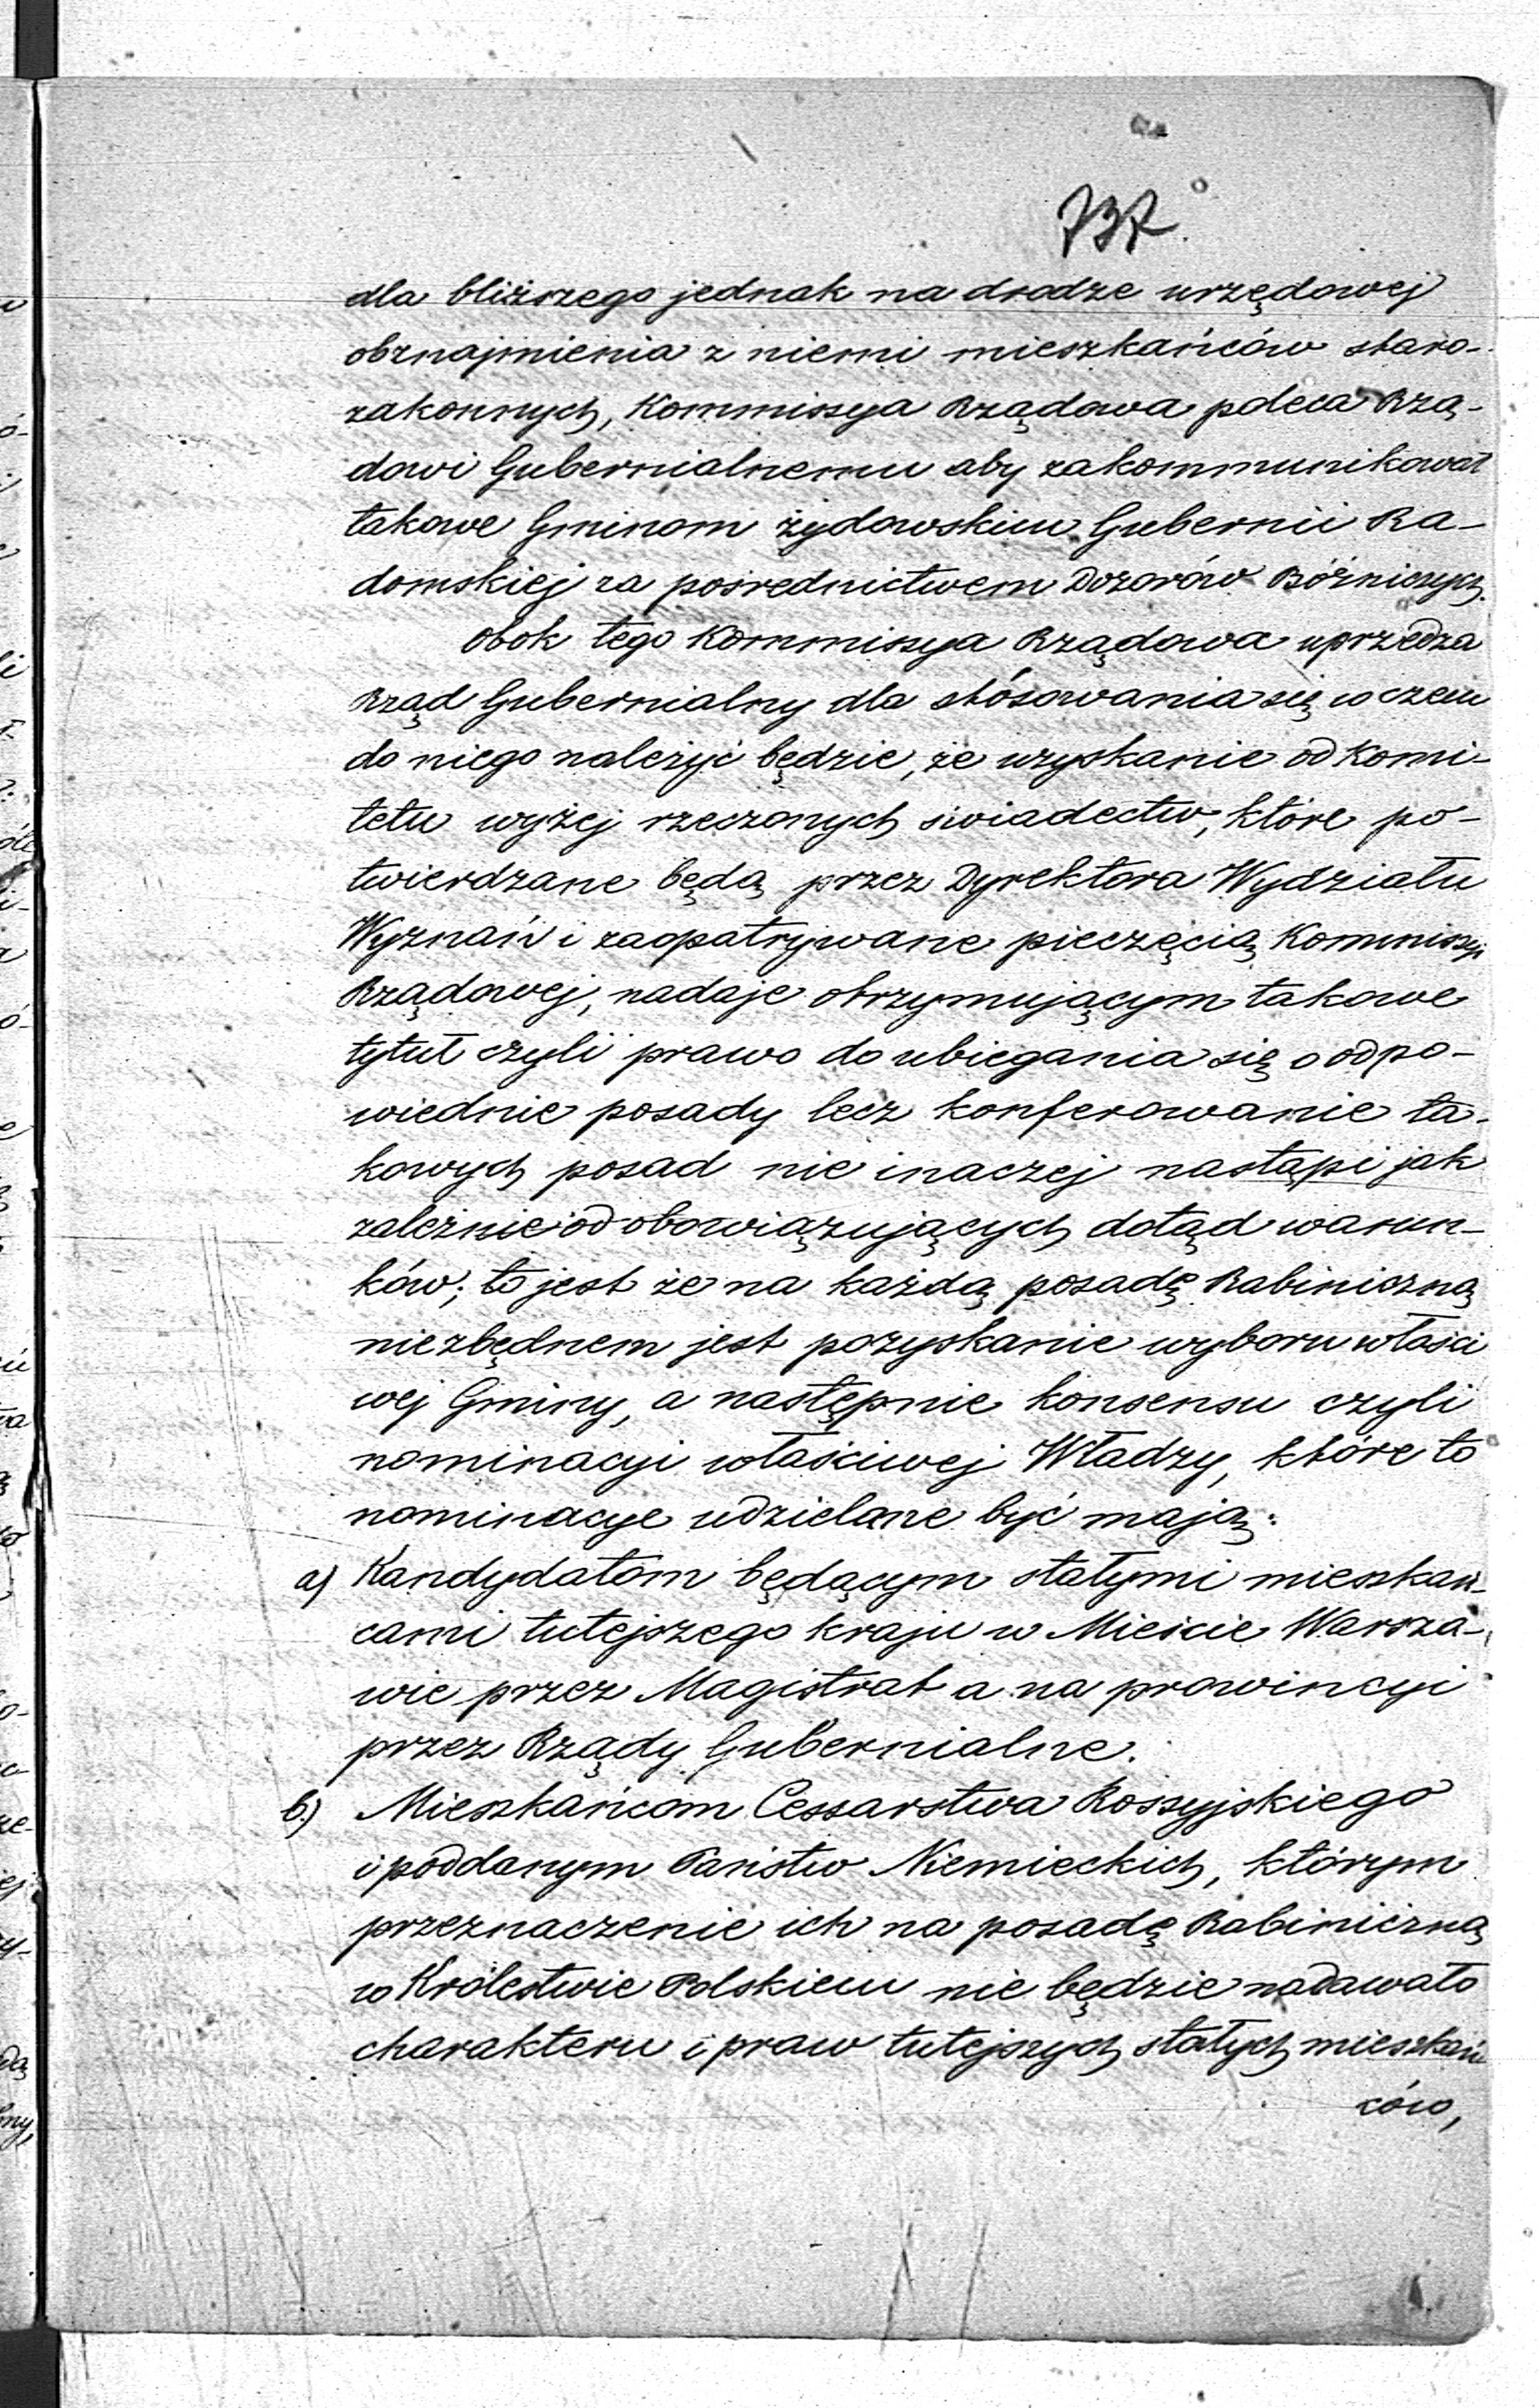 737.
dla bliższego jednak na drodze urzędowej
obznajmienia z niemi mieszkańców staro-
zakonnych, Kommissya Rządowa poleca Rzą-
dowi Gubernialnemu aby zakommunikował
takowe Gminom żydowskim Gubernii Ra-
domskiej za pośrednictwem Dozorów Bóżniczych.
obok tego Kommissya Rządowa uprzedza
Rząd Gubernialny dla stósowania się w czem
do niego należyć będzie, że uzyskanie od Komi-
tetu wyżej rzeczonych świadectw, które po-
twierdzane będą przez Dyrektora Wydziału
Wyznań i zaopatrywane pieczęcią Kommissyi
Rządowej, nadaje otrzymującym takowe
tytuł czyli prawo do ubiegania się o odpo-
wiednie posady lecz konferowanie ta-
kowych posad nie inaczej nastąpi jak
zależnie od obowiązujących dotąd warun-
ków; to jest że na każdą posadę Rabiniczną
niezbędnem jest pozyskanie wyboru właści
wej Gminy, a następnie konsensu czyli
nominacyi właściwej Władzy, które to
nominacye udzielane być mają:
a) Kandydatom będącym stałymi mieszkań-
cami tutejszego kraju w Mieście Warsza-
wie przez Magistrat a na prowincyi
przez Rządy Gubernialne.
b) Mieszkańcom Cessarstwa Rossyjskiego
i poddanym Państw Niemieckich, którym
przeznaczenie ich na posadę Rabiniczną
w Królestwie Polskiem nie będzie nadawało
charakteru i praw tutejszych stałych mieszkań
ców,